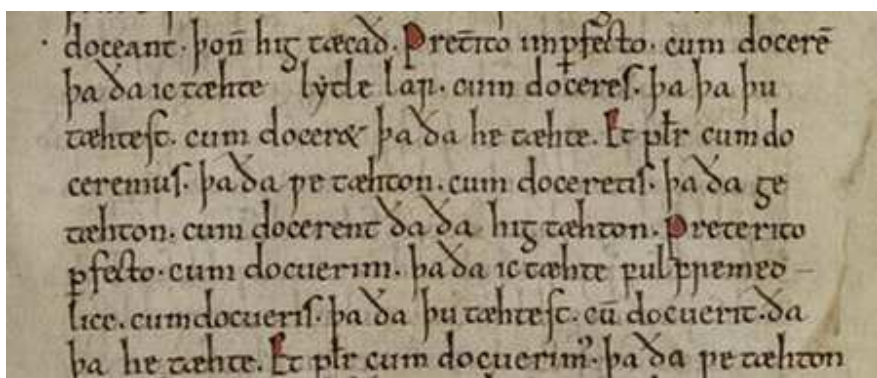 doceant · þoñ hig tæcað. Pret̄ito inp̱fēcto. cum docerē
þa ða ic tæhte lẏtle lær. cum doceres. þa þa þu
tæhtest. cum docer& þa ða he tæhte. Et płr cum do
ceremus. þa ða ƿe tæhton. cum doceretis. þa ða ge
tæhton. cum docerent ða ða hig tæhton. Preterito
ꝑfecto. cum docuerim. þa ða ic tæhte fulfremed
lice. cumdocueris. þa ða þu tæhtest. cū docuerit. ða
þa he tæhte. Et płr cum docuerimꝰ. þa ða ƿe tæhton